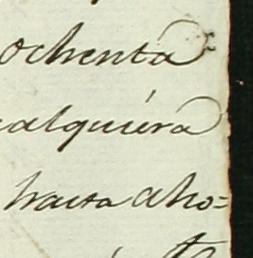 ochenta
calquiera
tracta aho=